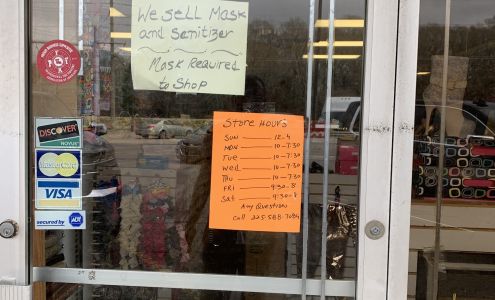 We Sell Mask
and Senitizer
Mask Required
to Shop
Store Hours
Sun 12-4
Mon 10-7:30
Tue 10-7:30
Wed 10-7:30
Thu 10-7:30
Fri 9:30-8
Sat 9:30-8
Any Question
Call 225-588-7084
DISCOVER
NOVUS
MasterCard
VISA
secured by ADT